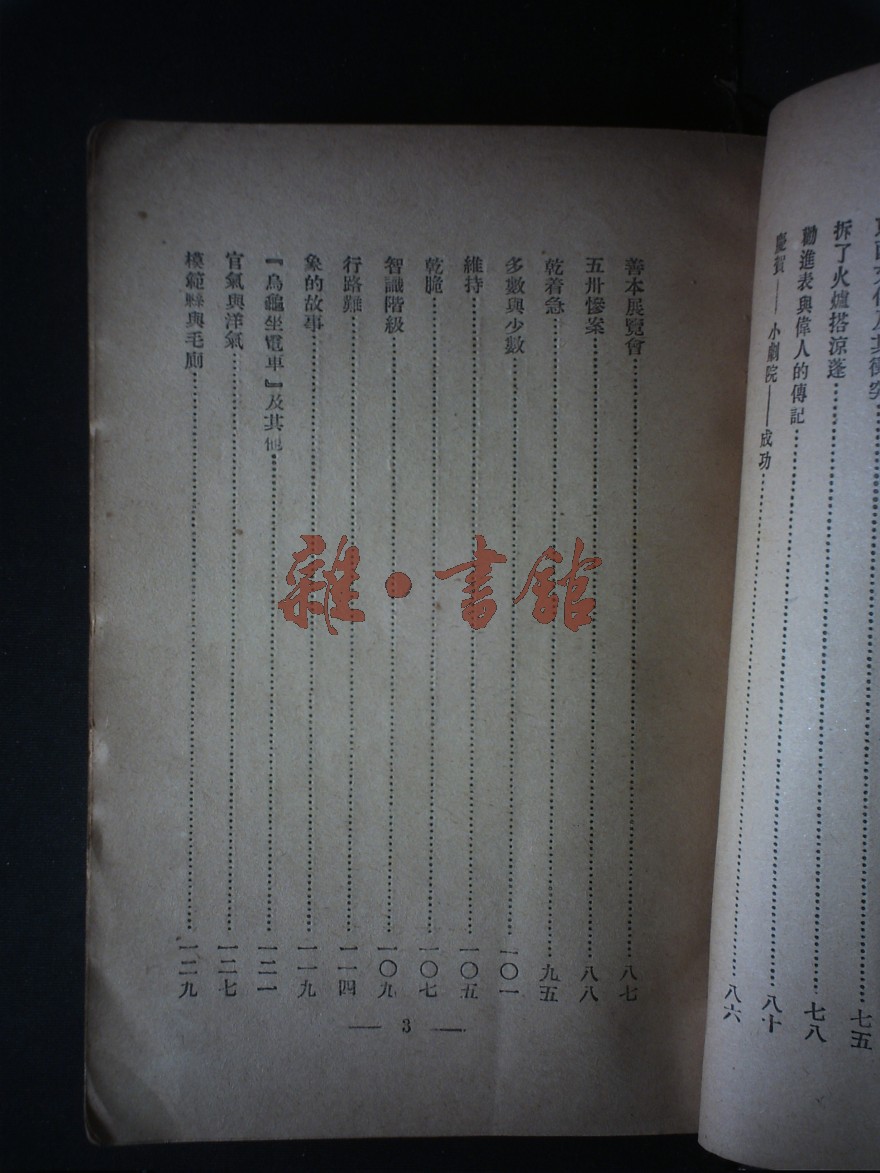 拆了火爐搭涼蓬⋯⋯七五
勸進表與偉人的傳記⋯⋯七八
慶賀——小劇院——成功⋯⋯八十
八六
善本展覽會⋯⋯八七
五卅慘案⋯⋯八八
乾着急⋯⋯九五
多數與少數⋯⋯一〇一
維持⋯⋯一〇五
乾脆⋯⋯一〇七
智識階級⋯⋯一〇九
行路難⋯⋯一一四
象的故事⋯⋯一一九
『烏龜坐電車』及其他⋯⋯一二一
官氣與洋氣⋯⋯一二七
模範縣與毛廁⋯⋯一二九
— 3 —
雜·書館